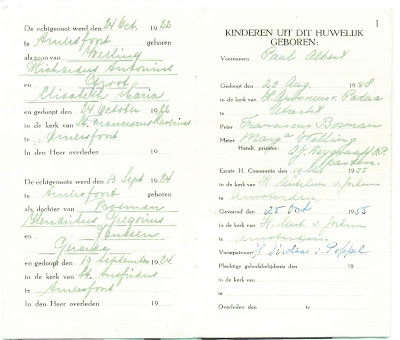 De echtgenoot werd den 24 Oct. 1922
te Amersfoort geboren
als zoon van Welling
Richardus Antonius
en Groot
Elisabeth Maria
en gedoopt den 24 October 1922
in de kerk van St. Franciscus Xaverius
te Amersfoort
In den Heer overleden 19
De echtgenoote werd den 13 Sept 1924
te Amersfoort geboren
als dochter van Bosman
Hendrikus Gregorius
en Janssen
Gerarda
en gedoopt den 13 September 1924
in de kerk van St. Ansfridus
te Amersfoort
In den Heer overleden 19
1
KINDEREN UIT DIT HUWELIJK
GEBOREN:
Voornamen Paul Albert
Gedoopt den 20 Aug. 1948
in de kerk van H. Antonius v. Padua
te Utrecht
Peter Franciscus Bosman
Meter Marg. Welling
Handt. priester
pastoor.
Eerste H. Communie den 19 Mei 1955
in de kerk van H. v. Gorkum
te
Gevormd den 25 Oct 1955
in de kerk van H. v. Gorkum
te
Vormpatroon v. Poppel
Plechtige geloofsbelijdenis den 19
in de kerk van
te
Overleden den te